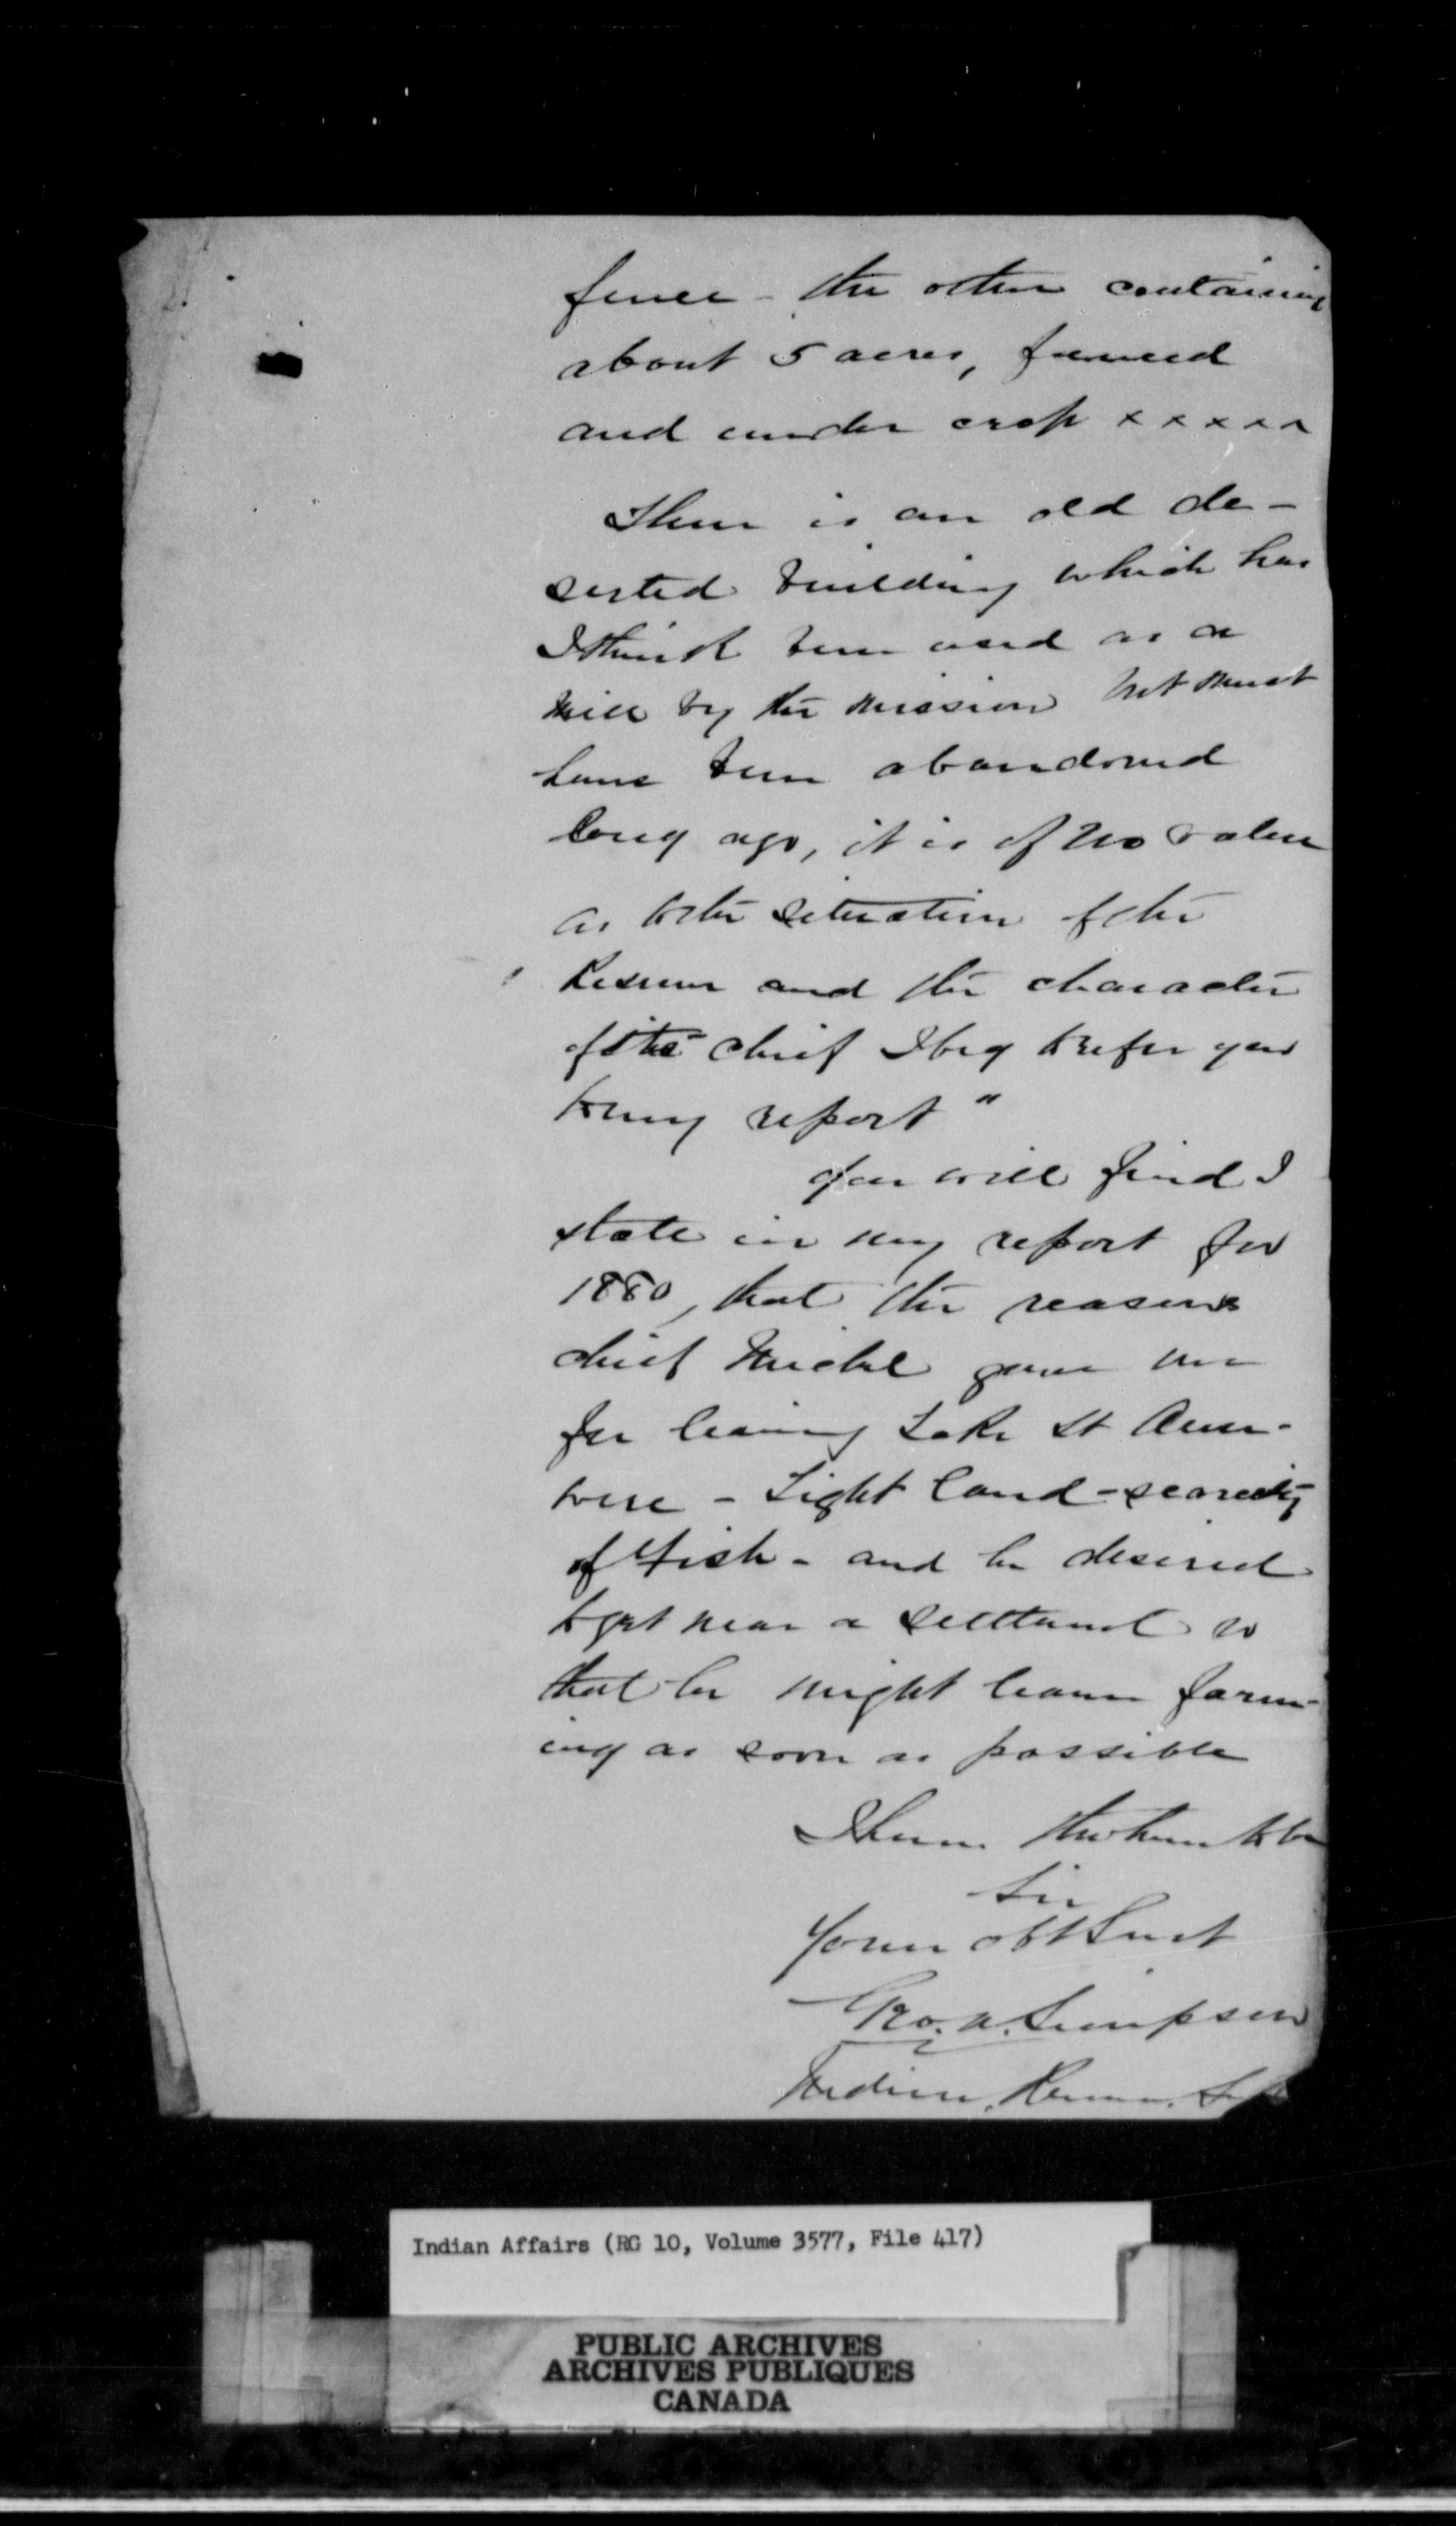 fence - the other containing
about 5 acres, fenced
and under crop x x x x x
There is an old de-
serted building which has
I think been used as a
mill by the mission but must
have been abandoned
long ago, it is of no value
as to the situation of the
Reserve and the character
of the chief I beg to refer you
to my report "
You will find I
state in my report for
1880, that the reasons
chief Michel gave me
for leaving Lake St Ann-
were - Light land - scarcity
of fish - and he desired
to get near a settlement so
that he might learn farm-
ing as soon as possible
I have the honor to be
Sir
Your obt Servt
Geo. A. Simpson
Indian Reserve Sur
Indian Affairs (RG 10, Volume 3577, File 417)
PUBLIC ARCHIVES
ARCHIVES PUBLIQUES
CANADA